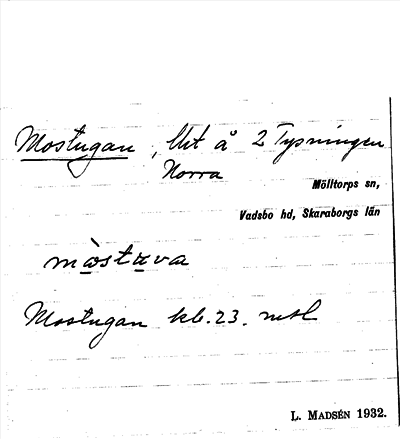 Mostugan, Ut å 2 Tysningen
Norra
Mölltorps sn,
Vadsbo hd, Skaraborgs län
mòstuva
Mostugan kb. 23.
L. MADSÉN 1932.